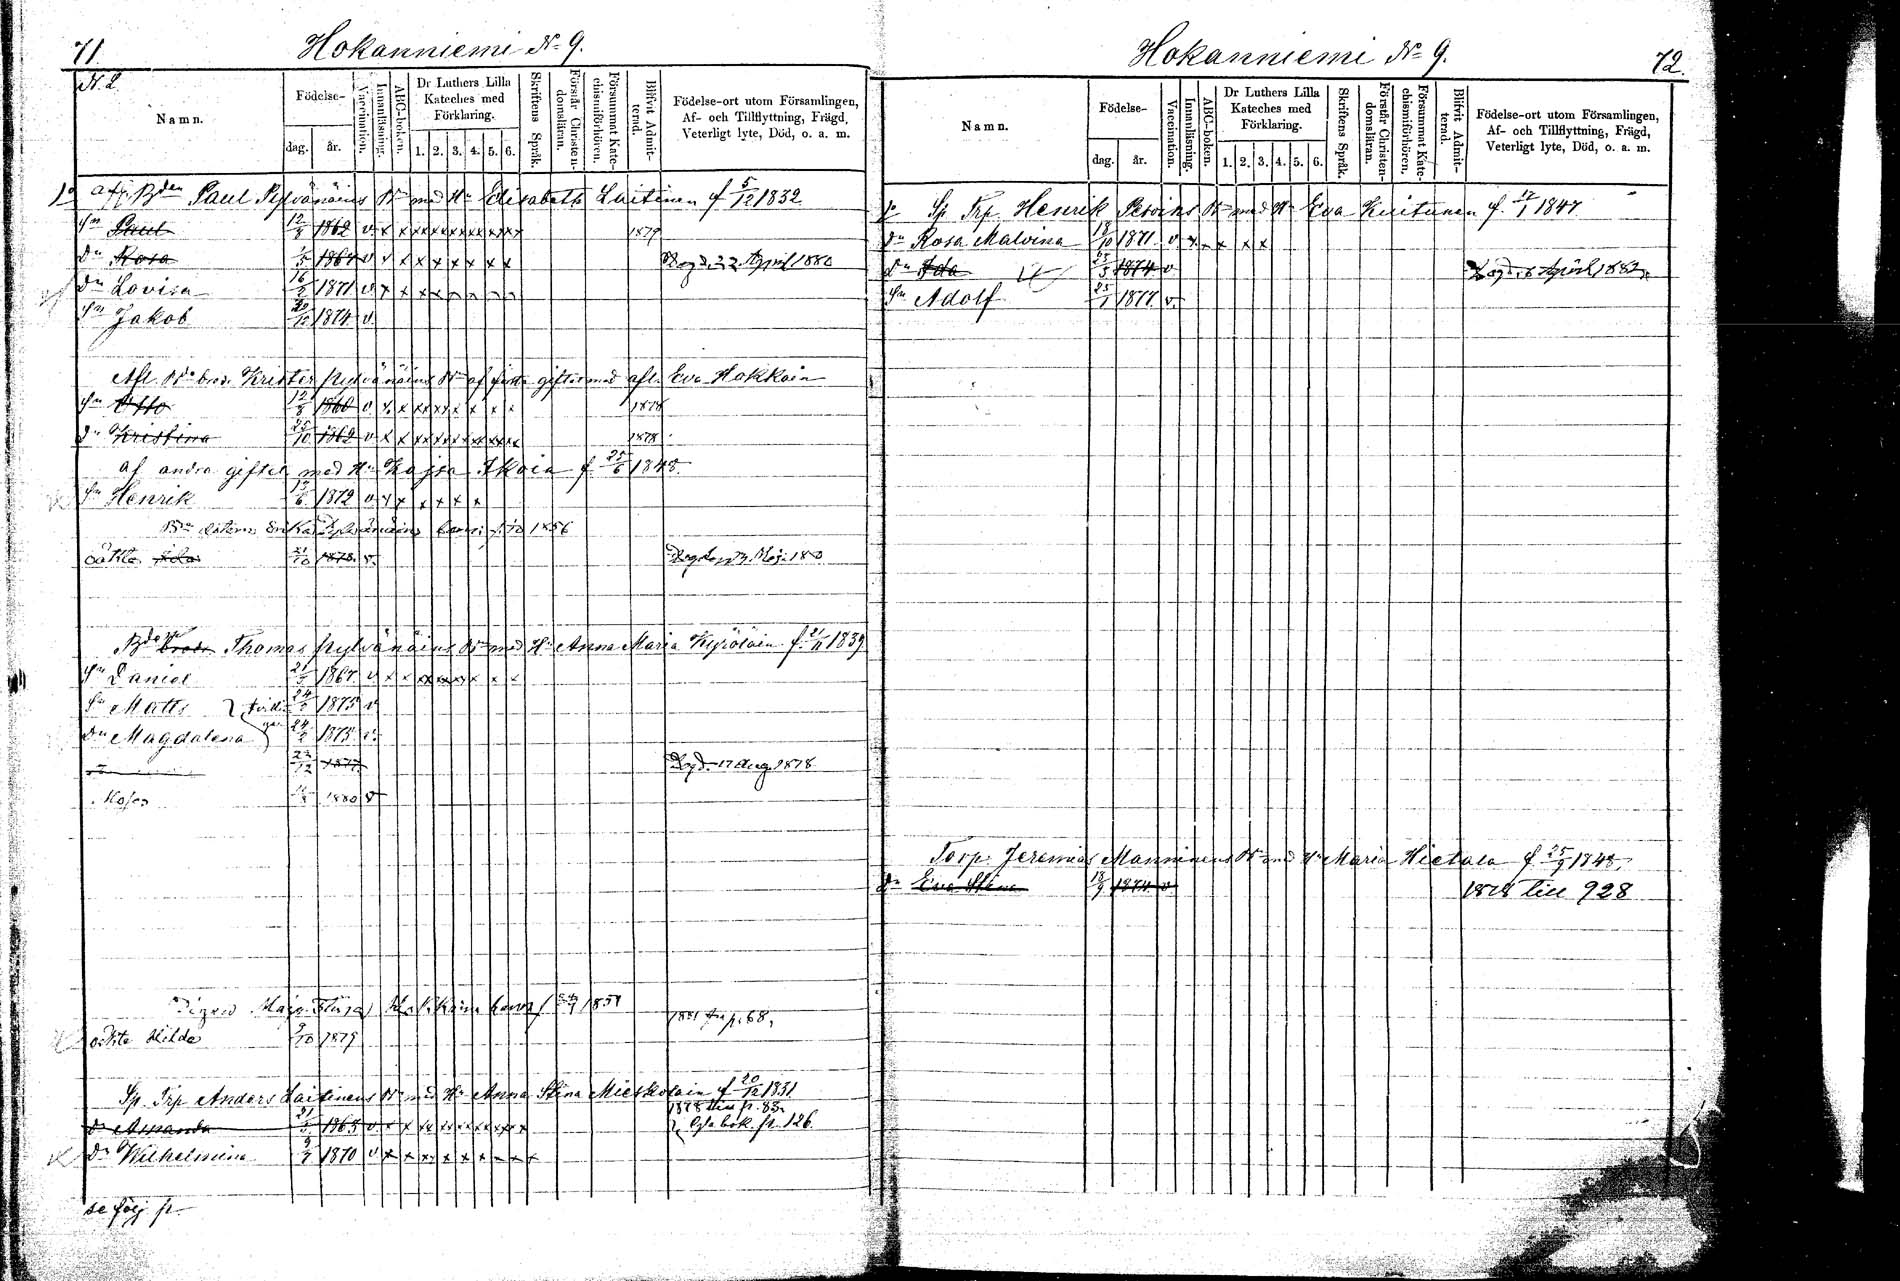 71.
Hokanniemi No 9.
N. 2
Namn.
Födelse-
dag.
år.
Vaccination.
Innanläsning.
ABC-boken.
Dr Luthers Lilla Kateches med Förklaring.
1. 2. 3. 4. 5. 6.
Skriftens Språk.
Förstår Christendomsläran.
Försummat Katechismiförhören.
Blifvit Admitterad.
Födelse-ort utom Församlingen, Af- och Tillflyttning, Frägd, Veterligt lyte, Död, o. a. m.
Paul Pylvänäins Bn med Hu Elisabeth Laitinen f 5/12 1832
Sn Paul 12/8 1862 v x x xx xx xx xx xx xx 1879
Dr Rosa 1/5 1867 v x x x x x x x x Död. 22 April 1880
Dr Lovisa 16/2 1871 v x x x x
Sn Jakob 1874 v
Afl. Bde brod. Krister Pylvänäins Bn af första giftet med afl. Eva Hokkain
Sn Otto 12/8 1860 v x x xx xx x x x x 1878
Dr Kristina 25/10 1862 v x x xx xx xx xx xx xx 1878
af andra giftet med Hu Kajsa Ikoin f 25/6 1848.
Sn Henrik 13/6 1872 v x x x x x x
1856
oäkta Ida 21/10 1878. v.
Bde brodr Thomas Pylvänäins Bn med Hu Anna Maria Kyröläin f. 21/11 1839
Sn Daniel 21/5 1867. v x x xx xx xx x x x
Sn Matts 24/2 1875 v
Dr Magdalena 24/2 1875. v.
22/12 1877. Död. 17 Aug. 1878
Moses 1880 v
1881 fr p. 68,
oäkta Hilda 9/10 1879
Sp. Trp Anders Laitinens Bn med Hu Anna Stina Mieskolain f 20/12 1831
1878 till p. 83.
Dr Amanda 21/5 1865 v x x xx xx xx xx xx x bok. p. 126.
Dr Wilhelmina 9/7 1870 v x x xx x x x x x
se följ p.
Hokanniemi No 9.
72.
Namn.
Födelse-
dag.
år.
Vaccination.
Innanläsning.
ABC-boken.
Dr Luthers Lilla Kateches med Förklaring.
1. 2. 3. 4. 5. 6.
Skriftens Språk.
Förstår Christendomsläran.
Försummat Katechismiförhören.
Blifvit Admitterad.
Födelse-ort utom Församlingen, Af- och Tillflyttning, Frägd, Veterligt lyte, Död, o. a. m.
Sp Trp. Henrik Bn med Hu Eva Kuitunen f. 17/1 1847
Dr Rosa Malvina 18/10 1871. v x x x x
Dr Ida 25/5 1874 v Död. 6 April 1882.
Sn Adolf 25/1 1877. v.
Torp. Jeremias Manninens Bn med Hu Maria Hietala f 25/9 1848,
Dr Eva Stina 18/9 1874 v 1878 till 928